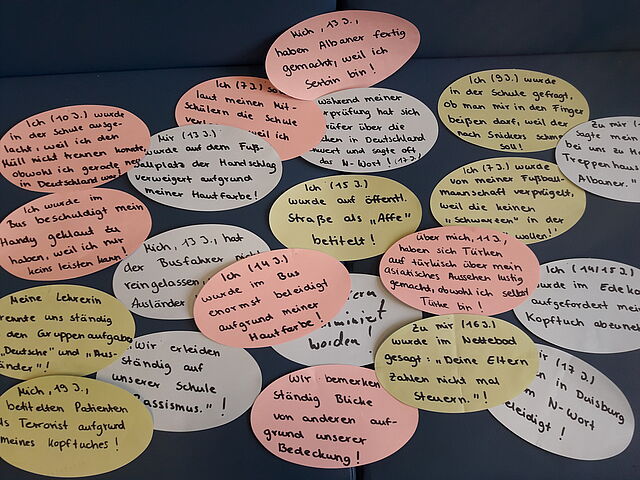 Mich, 13 J.,
haben Albaner fertig
gemacht, weil ich
Serbin bin!
Ich (7 J.)
laut meinen Mit-
schülern die Schule
weil ich
Ich (9 J.) wurde
in der Schule gefragt,
ob man mir den Finger
beißen darf, weil der
nach Snickers
soll!
Ich (10 J.) wurde
in der Schule ausge-
lacht, weil ich den
Müll nicht trennen konnte,
obwohl ich gerade neu
in Deutschland war!
Mir (13 J.)
wurde auf dem Fuß-
ballplatz der Handschlag
verweigert aufgrund
meiner Hautfarbe!
während meiner
prüfung hat sich
über die
in Deutschland
und sagte oft
das N-Wort! (17 J.)
Zu mir
sagte mein
bei uns zu
Treppenhaus
Albaner."
Ich (15 J.)
wurde auf öffentl.
Straße als „Affe"
betitelt!
Ich (7 J.) wurde
von meiner Fußball-
mannschaft verprügelt,
weil die keinen
„Schwarzen" in der
wollen!
Ich wurde im
Bus beschuldigt mein
Handy geklaut zu
haben, weil ich mir
keins leisten kann!
Mich, 13 J., hat
der Busfahrer
reingelassen,
Ausländer
Ich (14 J.)
wurde im Bus
enormst beleidigt
aufgrund meiner
Hautfarbe!
Über mich, 11 J.,
haben sich Türken
auf türkisch über mein
asiatisches Aussehen lustig
gemacht, obwohl ich selbst
Türke bin!
Ich (14/15 J.)
wurde im Edeka
aufgefordert mein
Kopftuch
Meine Lehrerin
trennte uns ständig
den Gruppenaufgaben
„Deutsche" und „Aus-
länder"!
worden!
Wir erleiden
ständig auf
unserer Schule
Rassismus."!
Zu mir (16 J.)
wurde im Nettebad
gesagt: „Deine Eltern
zahlen nicht mal
Steuern."!
(17 J.)
in Duisburg
N-Wort
beleidigt!
Mich, 19 J.,
betitelten Patienten
als Terrorist aufgrund
meines Kopftuches!
Wir bemerken
ständig Blicke
von anderen auf-
grund unserer
Bedeckung!